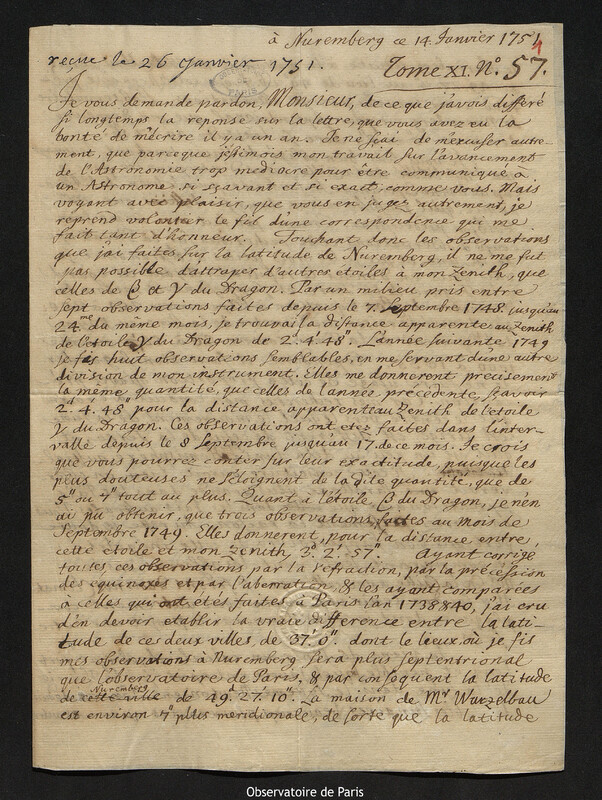 à Nuremberg ce 14 Janvier 1751
reçue le 26 Janvier 1751.
Tome XI. N.º 57.
Je vous demande pardon, Monsieur, de ce que j'avois differé
si longtemps la reponse sur la lettre, que vous avez eu la
bonté de m'écrire il y a un an. Je ne sçai de m'excuser autre-
ment, que parceque j'estimois mon travail sur l'avancement
de l'Astronomie trop mediocre pour être communiqué à
un Astronome si sçavant et si exact, comme vous. Mais
voyant avec plaisir, que vous en jugez autrement, je
reprend volontier le fil d'une correspondence qui me
fait tant d'honneur. Touchant donc les observations
que j'ai faites sur la latitude de Nuremberg, il ne me fut
pas possible d'attraper d'autres étoiles à mon Zenith, que
celles de β et γ du Dragon. Par un milieu pris entre
sept observations faites depuis le 7. Septembre 1748. jusqu'au
24.me du même mois, je trouvai la distance apparente au Zenith
de l'étoile γ du Dragon de 2. 4. 48". L'année suivante 1749
je fis huit observations semblables, en me servant d'une autre
division de mon instrument. Elles me donnerent precisement
la même quantité, que celles de l'année précedente, sçavoir
2.d 4.' 48" pour la distance apparente au Zenith de l'étoile
γ du Dragon. Les observations ont eté faites dans l'inter-
valle depuis le 8 Septembre jusqu'au 17. de ce mois. Je crois
que vous pourrez conter sur leur exactitude, puisque les
plus douteuses ne s'eloignent de la dite quantité, que de
5" ou 7" tout au plus. Quant à l'étoile β du Dragon, je n'en
ai pu obtenir, que trois observations, faites au Mois de
Septembre 1749. Elles donnerent, pour la distance, entre
cette étoile et mon Zenith, 3.º 2.' 57". Ayant corrigé
toutes ces observations par la refraction, par la précession
des equinoxes et par l'aberration, & les ayant comparées
à celles qui ont étés faites à Paris l'an 1738 & 40, j'ai cru
d'en devoir etablir la vraie difference entre la lati-
tude de ces deux villes de 37.' 0" dont le lieux, où je fis
mes observations à Nuremberg sera plus septentrional
que l'observatoire de Paris, & par consequent la latitude
de cette ville Nuremberg de 49.d 27.' 10". La maison de Mr Wurzelbau
est environ 7" plus meridionale, de sorte que la latitude
Observatoire de Paris